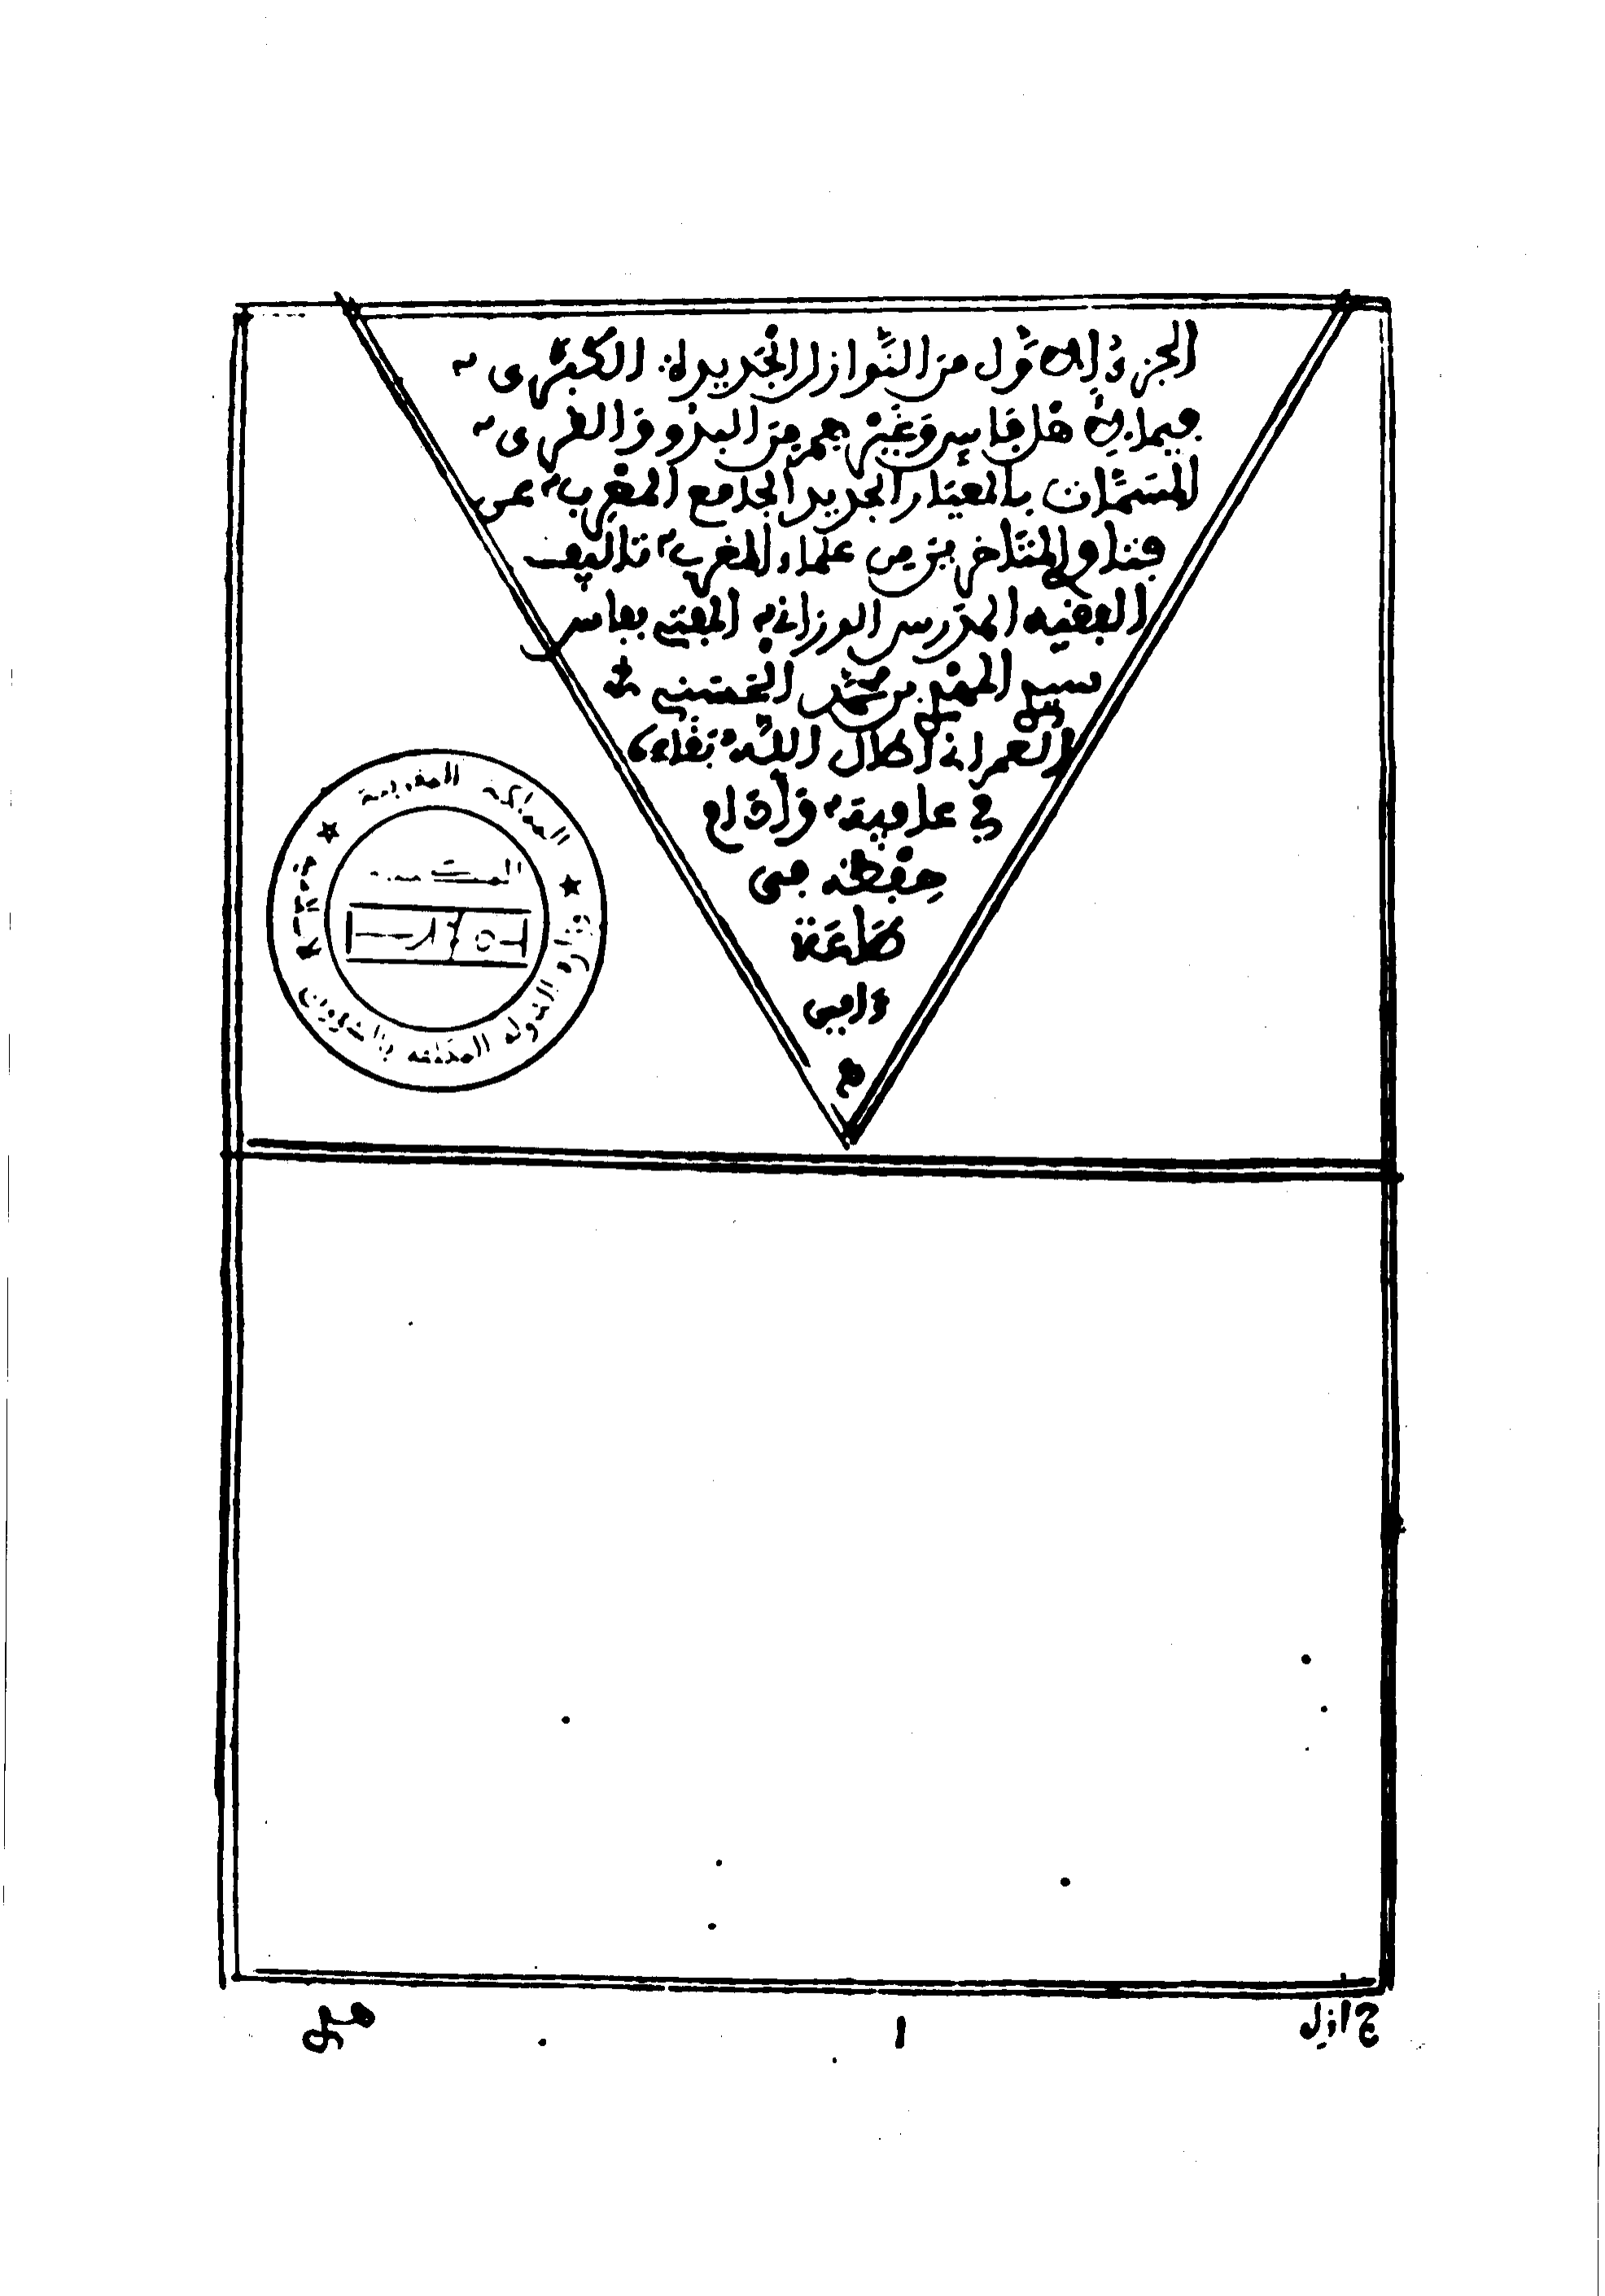 الجزء الاول من النوازل الجديدة الكبرى
فيما لاهل فاس وغيرهم من البدو والقرى
المسمات بالمعيار الجديد الجامع المغرب عن
فتاوي المتاخرين من علماء المغرب تاليف
الفقيه المدرس الوزاني المفتي بفاس
سيدي المهدي بن محمد الحسني
العمراني اطال الله بقاءه
في عافية وادام
حفظه في
طاعة
وامن
المملكة المغربية
وزارة الدولة المكلفة بالشؤون
ج اول
١